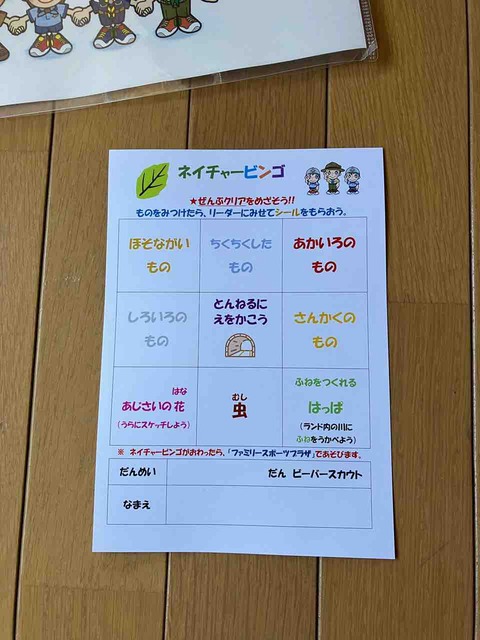 ネイチャービンゴ
★ぜんぶクリアをめざそう!!
ものをみつけたら、リーダーにみせてシールをもらおう。
ほそながい
もの
ちくちくした
もの
あかいろの
もの
しろいろの
もの
とんねるに
えをかこう
さんかくの
もの
はな
あじさいの花
(うらにスケッチしよう)
むし
虫
ふねをつくれる
はっぱ
(ランド内の川に
ふねをうかべよう)
※ ネイチャービンゴがおわったら、「ファミリースポーツプラザ」であそびます。
だんめい
だん ビーバースカウト
なまえ